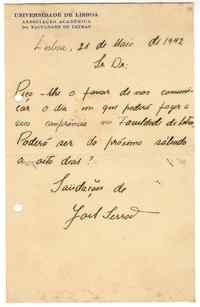 UNIVERSIDADE DE LISBOA
ASSOCIAÇÃO ACADÉMICA
DA FACULDADE DE LETRAS
Lisboa, 28 de Maio de 1942
Sr. Dr.:
Peço-lhe o favor de nos comuni-
car o dia em que poderá fazer a
sua conferência na Faculdade de Letras.
Poderá ser do próximo sábado
a oito dias?
Saudações de
Joel Serrão